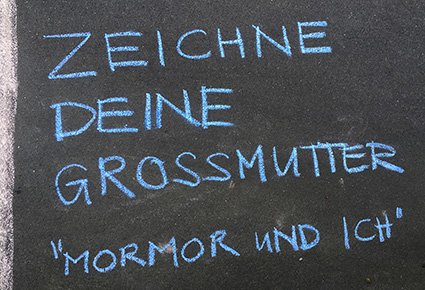 ZEICHNE
DEINE
GROSSMUTTER
"MORMOR UND ICH"